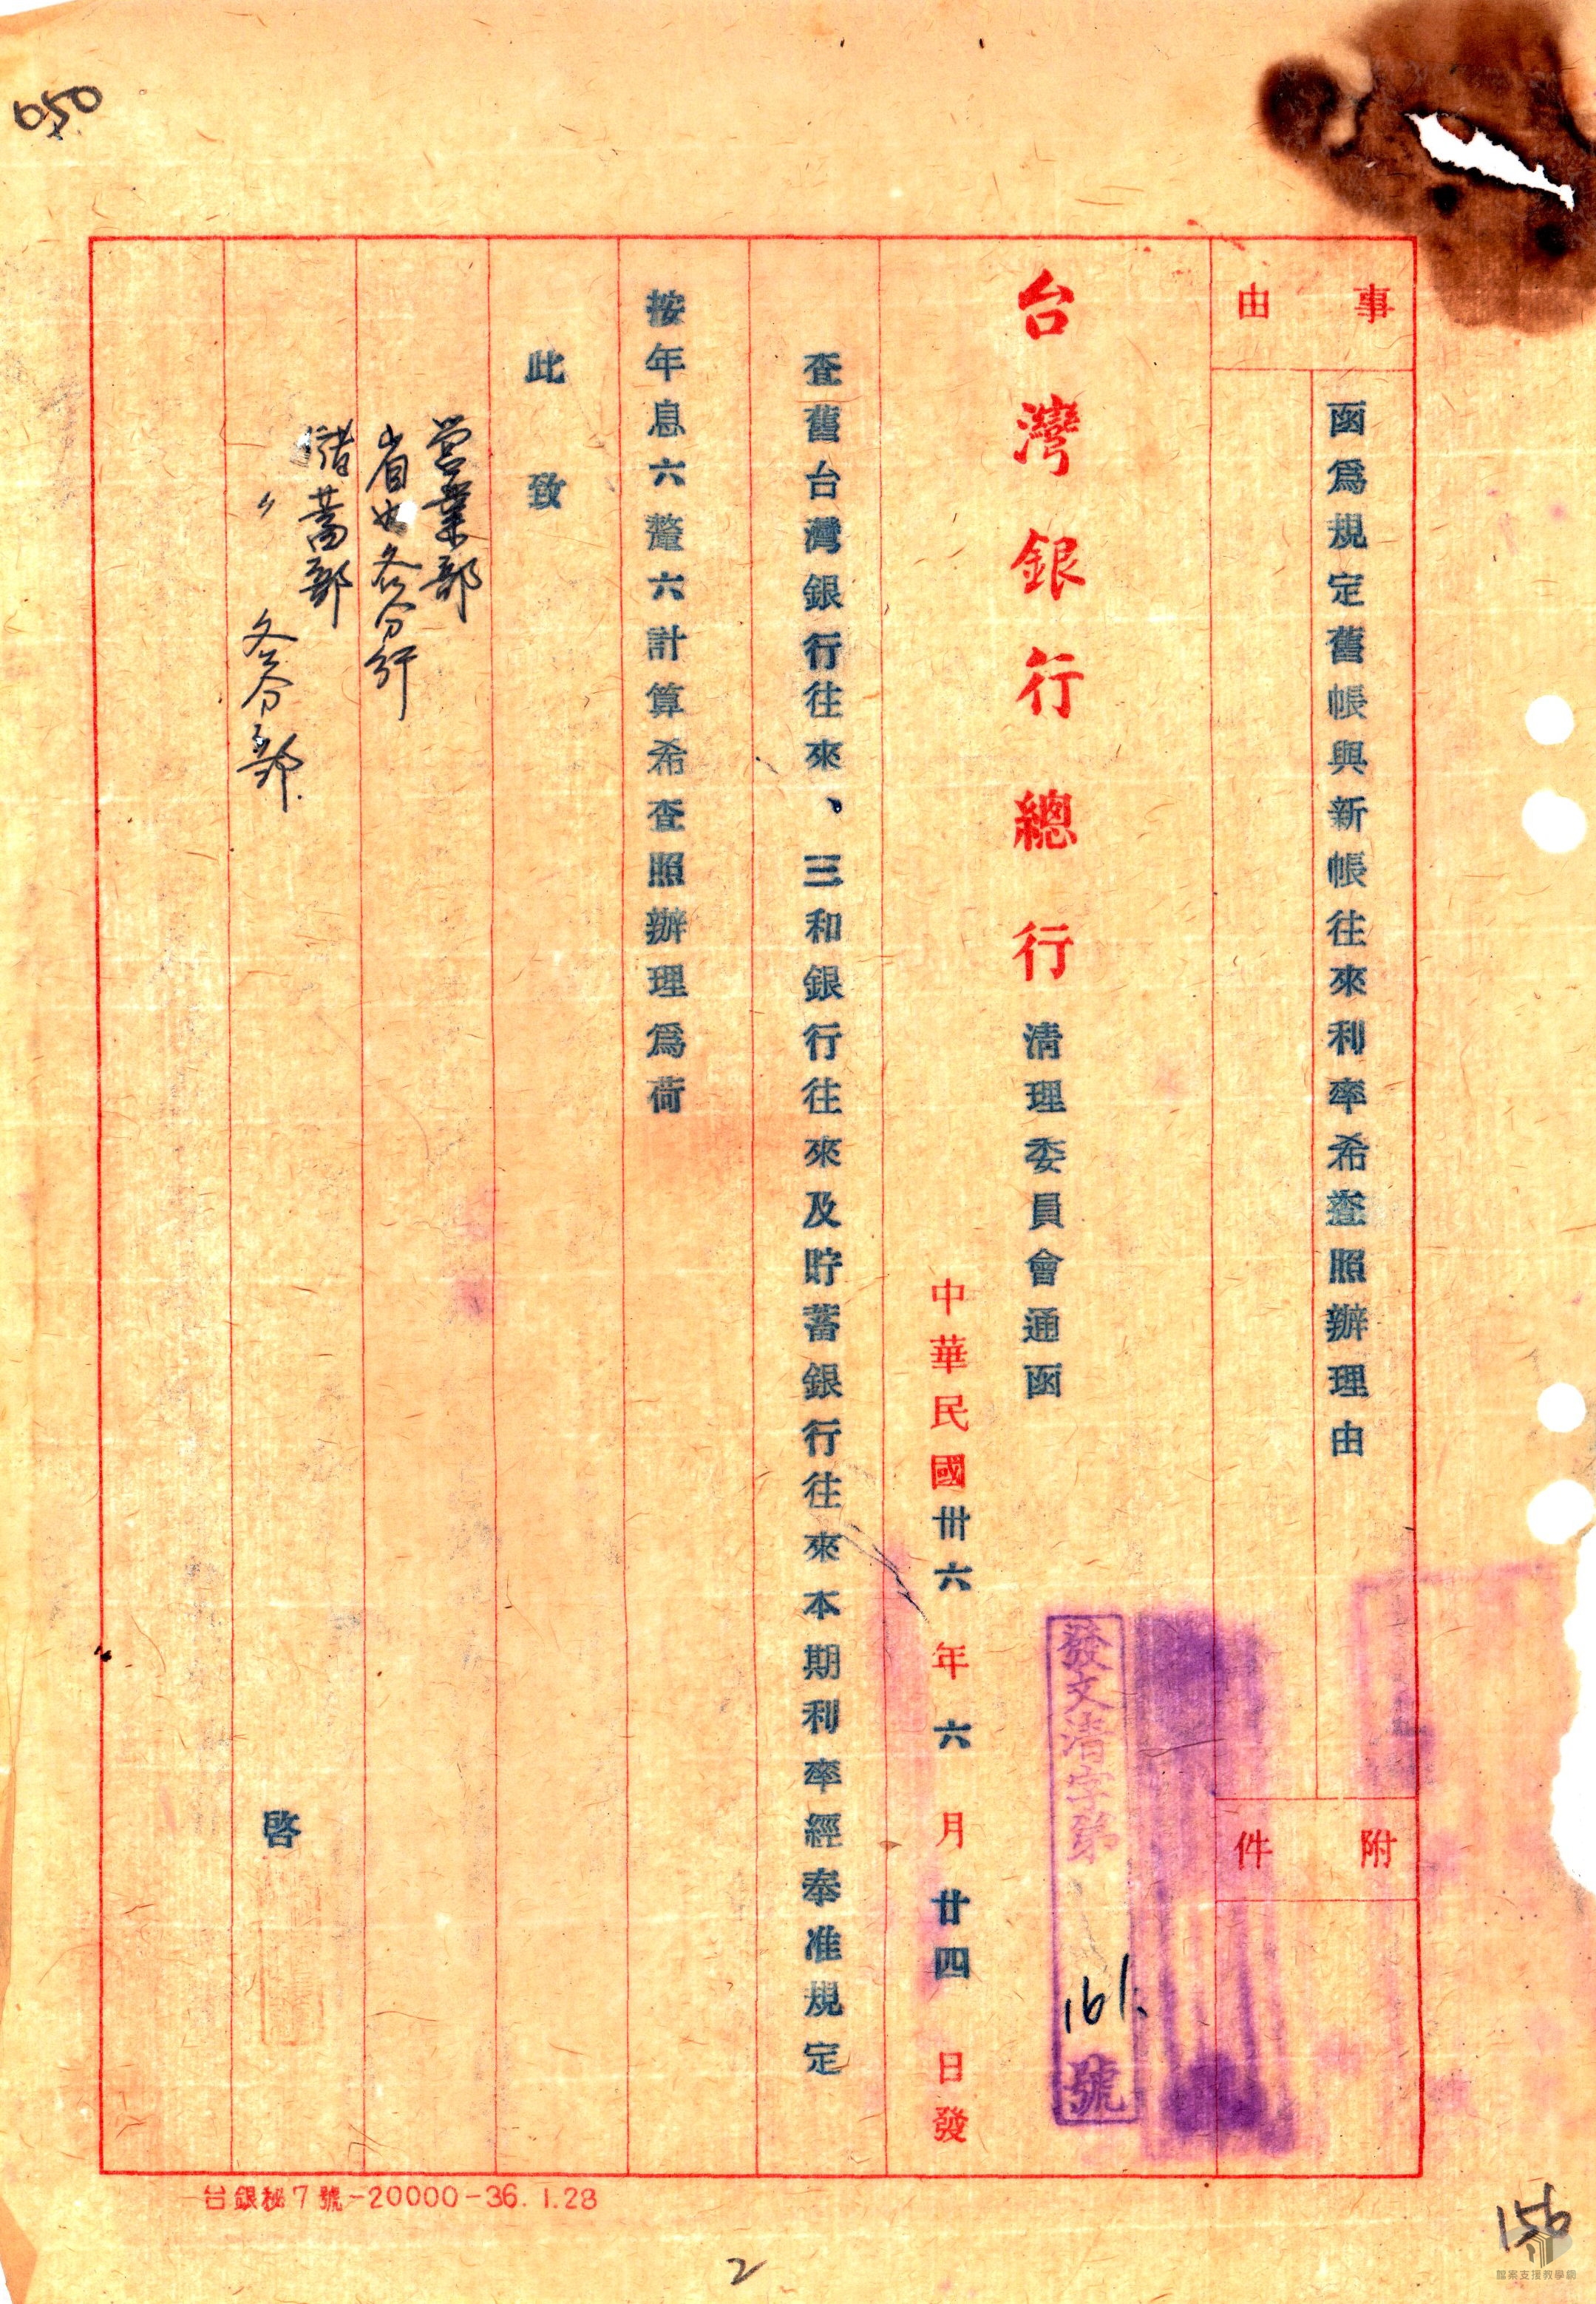 050
事由
函為規定舊帳與新帳往來利率希查照辦理由
附件
台灣銀行總行清理委員會通函
發文清字第161號
中華民國卅六年六月廿四日發
查舊台灣銀行往來、三和銀行往來及貯蓄銀行往來本期利率經奉准規定
按年息六釐六計算希查照辦理為荷
此致
营業部
省内各分行
儲蓄部
〃各分部
啓
台銀秘7號-20000-36.1.28
2
156
檔案支援教學網